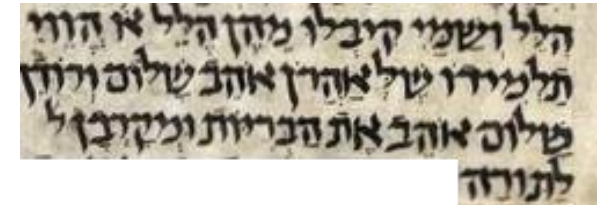 הלל ושמי קיבלו מהן הלל או הווי
תלמידו של אהרן אוהב שלום ורודף
שלום אוהב את הבריות ומקרבן ל
לתורה